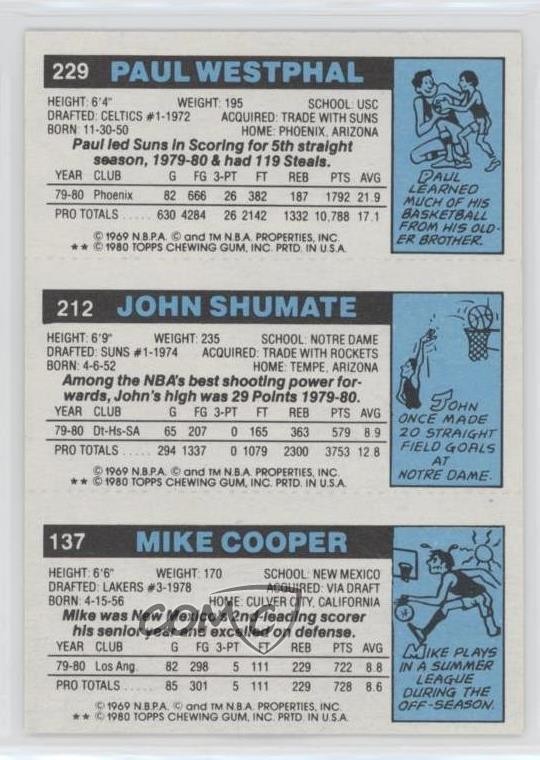 229 PAUL WESTPHAL
HEIGHT: 6'4" WEIGHT: 195 SCHOOL: USC
DRAFTED: CELTICS #1-1972 ACQUIRED: TRADE WITH SUNS
BORN: 11-30-50 HOME: PHOENIX, ARIZONA
Paul led Suns in Scoring for 5th straight
season, 1979-80 & had 119 Steals.
YEAR CLUB G FG 3-PT FT REB PTS AVG
79-80 Phoenix 82 666 26 382 187 1792 21.9
PRO TOTALS ..... 630 4284 26 2142 1332 10,788 17.1
© 1969 N.B.P.A. © and TM N.B.A. PROPERTIES, INC.
★★ © 1980 TOPPS CHEWING GUM, INC. PRTD. IN U.S.A.
PAUL
LEARNED
MUCH OF HIS
BASKETBALL
FROM HIS OLD-
ER BROTHER.
212 JOHN SHUMATE
HEIGHT: 6'9" WEIGHT: 235 SCHOOL: NOTRE DAME
DRAFTED: SUNS #1-1974 ACQUIRED: TRADE WITH ROCKETS
BORN: 4-6-52 HOME: TEMPE, ARIZONA
Among the NBA's best shooting power for-
wards, John's high was 29 Points 1979-80.
YEAR CLUB G FG 3-PT FT REB PTS AVG
79-80 Dt-Hs-SA 65 207 0 165 363 579 8.9
PRO TOTALS ..... 294 1337 0 1079 2300 3753 12.8
© 1969 N.B.P.A. © and TM N.B.A. PROPERTIES, INC.
★★ © 1980 TOPPS CHEWING GUM, INC. PRTD. IN U.S.A.
JOHN
ONCE MADE
20 STRAIGHT
FIELD GOALS
AT
NOTRE DAME.
137 MIKE COOPER
HEIGHT: 6'6" WEIGHT: 170 SCHOOL: NEW MEXICO
DRAFTED: LAKERS #3-1978 ACQUIRED: VIA DRAFT
BORN: 4-15-56 HOME: CULVER CITY, CALIFORNIA
Mike was New Mexico's 2nd leading scorer
his senior year and excelled on defense.
YEAR CLUB G FG 3-PT FT REB PTS AVG
79-80 Los Ang. 82 298 5 111 229 722 8.8
PRO TOTALS ..... 85 301 5 111 229 728 8.6
© 1969 N.B.P.A. © and TM N.B.A. PROPERTIES, INC.
★★ © 1980 TOPPS CHEWING GUM, INC. PRTD. IN U.S.A.
MIKE PLAYS
IN A SUMMER
LEAGUE
DURING THE
OFF-SEASON.
COMC